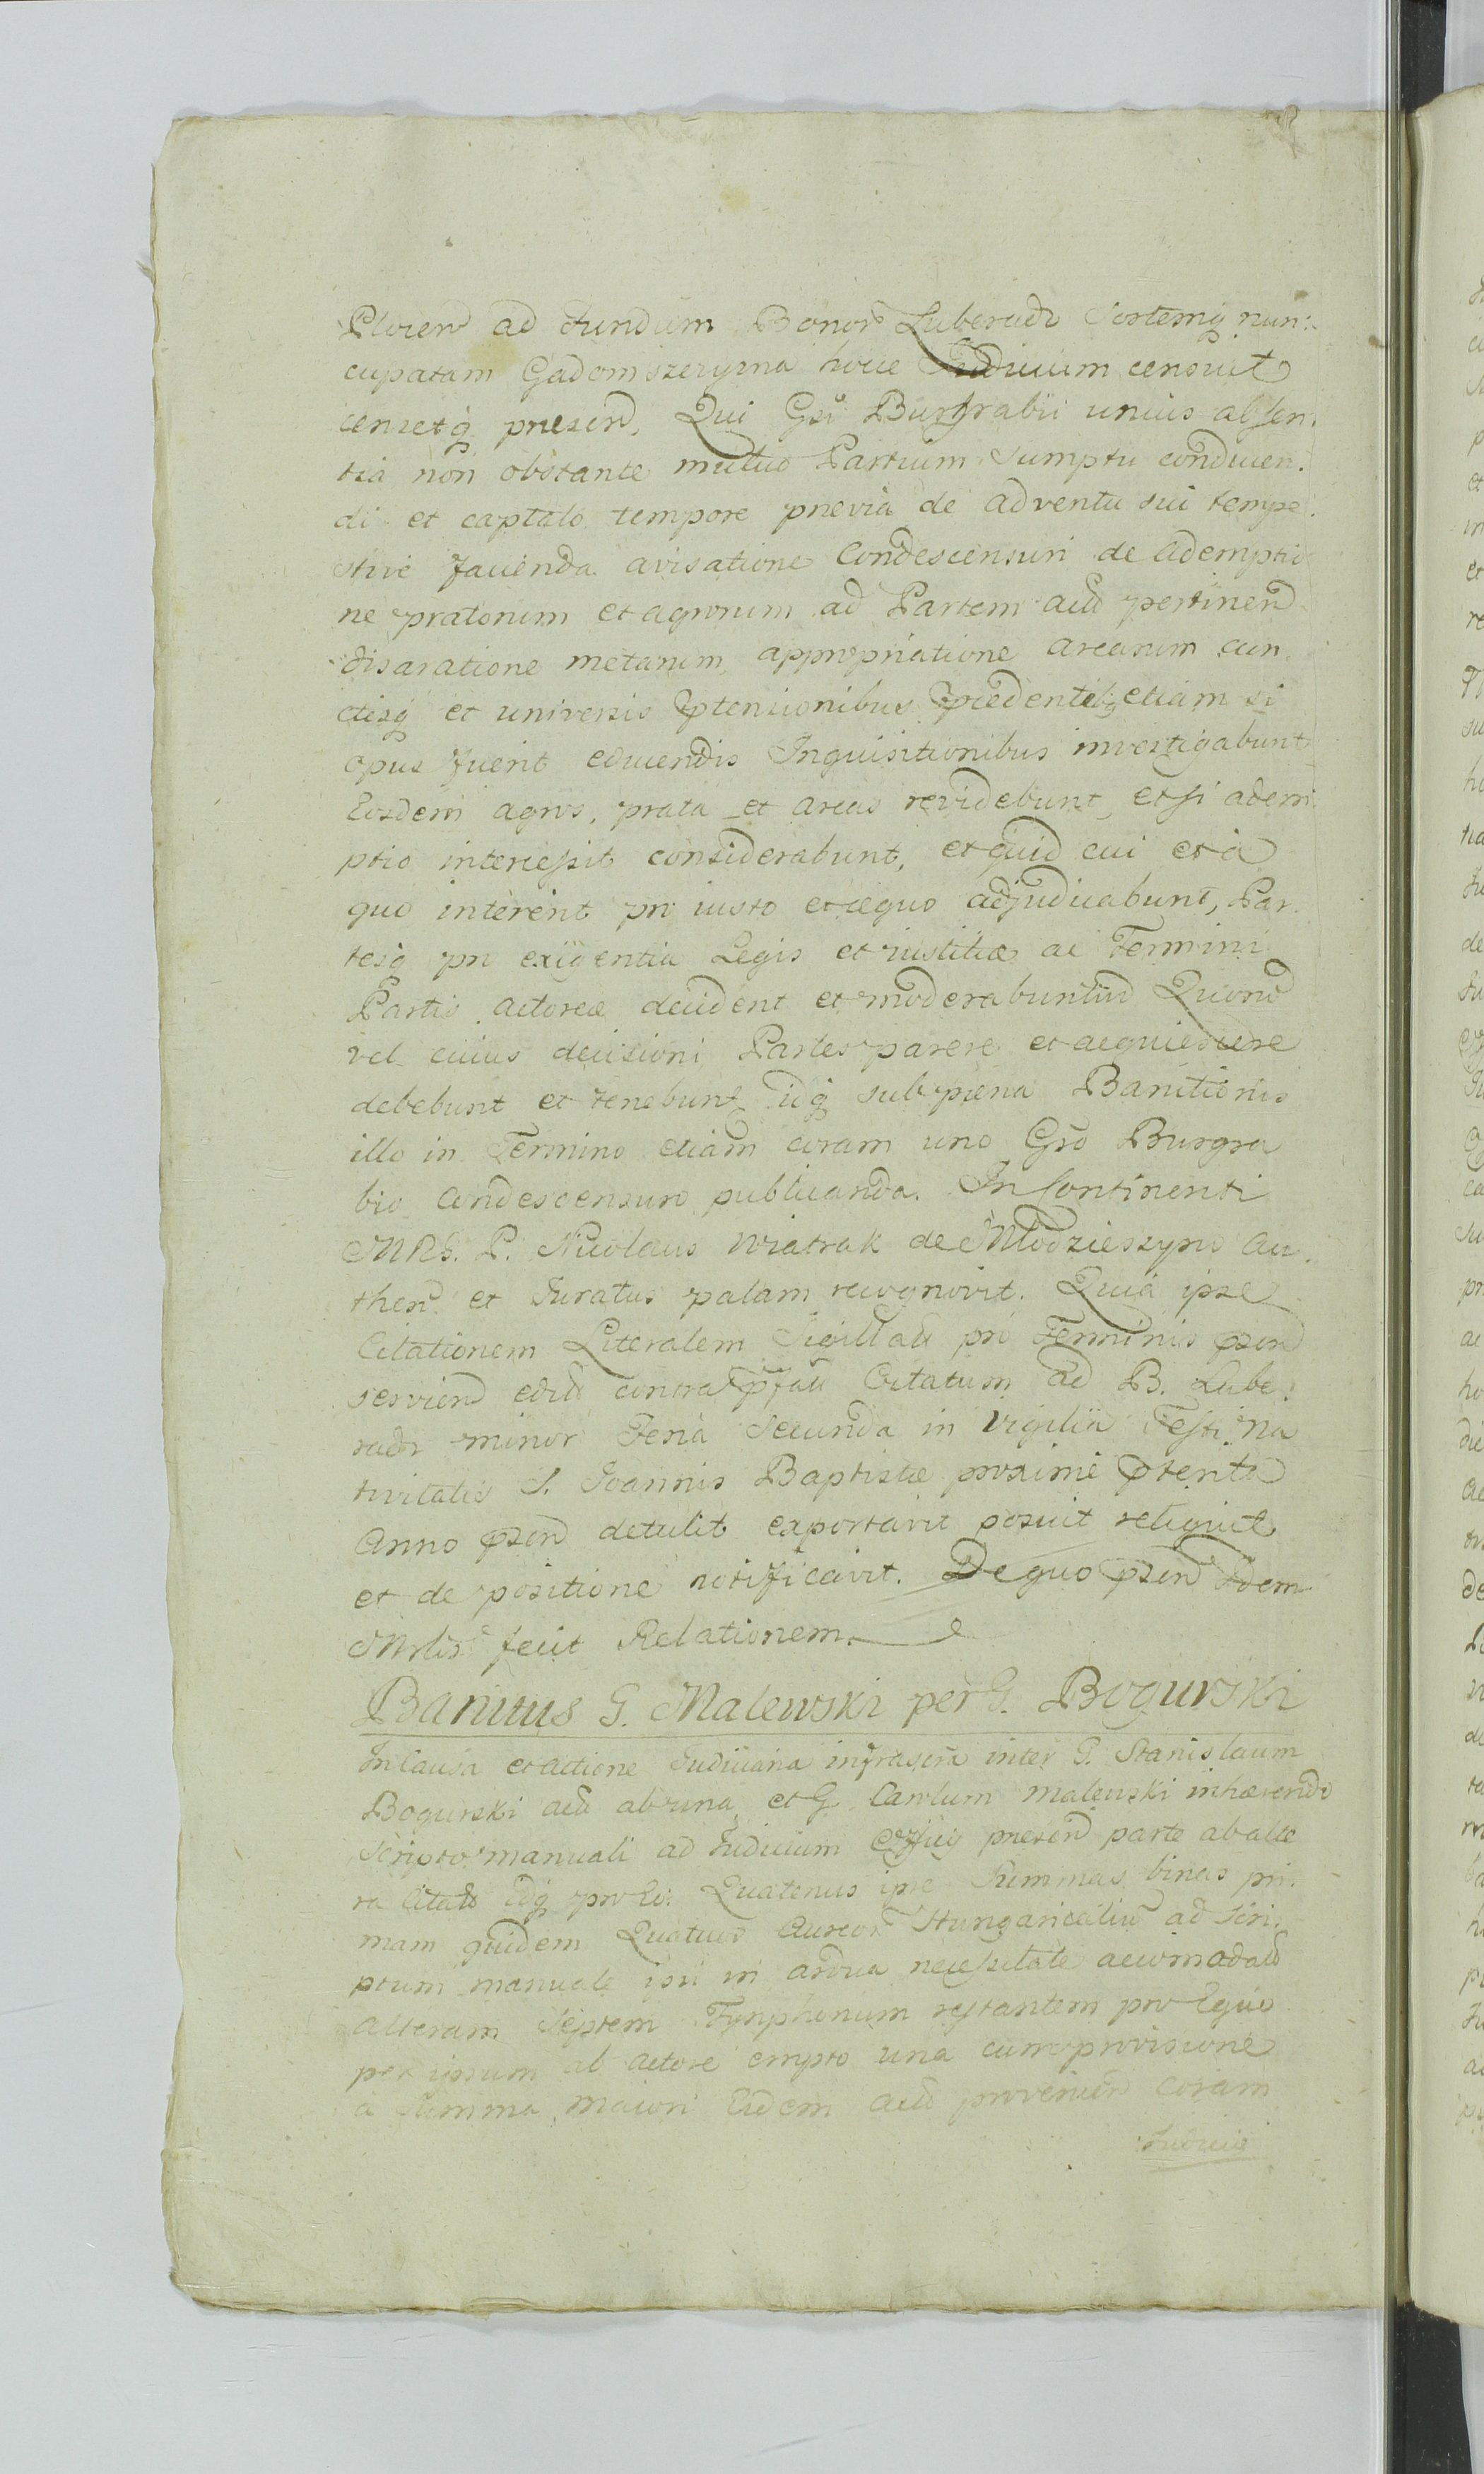 Plocen ad Fundum Bonor Luberadz Sortemq nun:
cupatam Gadomszczyzna hocce Judicium censuit
censetq presen. Qui Gsi Burgrabii unius absen:
tia non obstante mutuo Partium sumptu conducen:
di et captato tempore previa de adventu sui tempe:
stive facienda avisatione Condescensuri de ademptio
ne pratorum et agrorum ad Partem act pertinen
disaratione metarum appropriatione arearum cun
ctisq et universis ptensionibus pcedentibq etiam si
opus fuerit educendis Inquisitionibus investigabunt
Eosdem agros, prata et areas revidebunt, et si adem
ptio intercessit considerabunt, et quid cui et a
quo interent pro iusto et æquo adjudicabunt, Par
tesq pro exigentia Legis et iustitiæ ac Termini
Partis actoreæ decident et moderabuntur Quorum
vel cuius decisioni Partes parere et acquiescere
debebunt et tenebunt idq sub pæna Banitionis
illo in Termino etiam coram uno Gro Burgra
bio Condescensuro publicanda. In Continenti
MRG. P. Nicolaus Wiatrak de Młodzieszyno au:
then et Juratus palam recognovit. Quia ipse
Citationem Literalem Sigillatt pro Terminis psen
servien edit contra pfatt Citatum ad B. Lube:
radz minor Feria Secunda in Vigilia Festi Na
tivitatis S. Joannis Baptistæ proxime pterita
Anno psen detulit exportavit posuit reliquit
et de positione notificavit. De quo psen Idem
Mrlis fecit Relationem.
Banitus G. Malewski per G. Bogurski
In Causa et actione Judiciaria infrascra inter G. Stanislaum
Bogurski act ab una et G. Carolum Malewski inhærendo
Scripto manuali ad Judicium presen parte ab alte
ra Citatt idq pro Eo. Quatenus ipse Summas binas pri:
mam quidem Quatuor Aureor Hungaricaliu ad Scri:
ptum manuale ipsi in ardua necessitate accomodatt
alteram Septem Tynphonum restantem pro Equo
per ipsum ab actore empto una cum provisione
a Summa maiori Eidem act provenien coram
Judicio